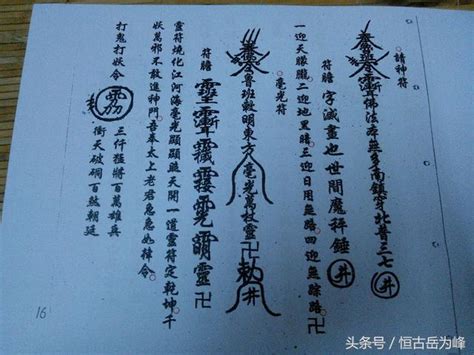 請神符
佛法本無多南鎮穿北普三七 井
符膽 字滅晝也世間魔秤錘 井
一迎天朦朧。二迎地黑暗。三迎日月無路。四迎無踪路。卍
毫光符
魯班敕明東方毫光萬枝靈卍勅井
符膽 靈
靈符燒化江河海毫光顯顯照天開一道靈符定乾坤千
妖萬邪不敢進神門。吾奉太上老君急急如律令。
打鬼打妖令
三仟猛將百萬雄兵
衝天破硐百煞朝廷
16
头条号 / 恒古岳为峰